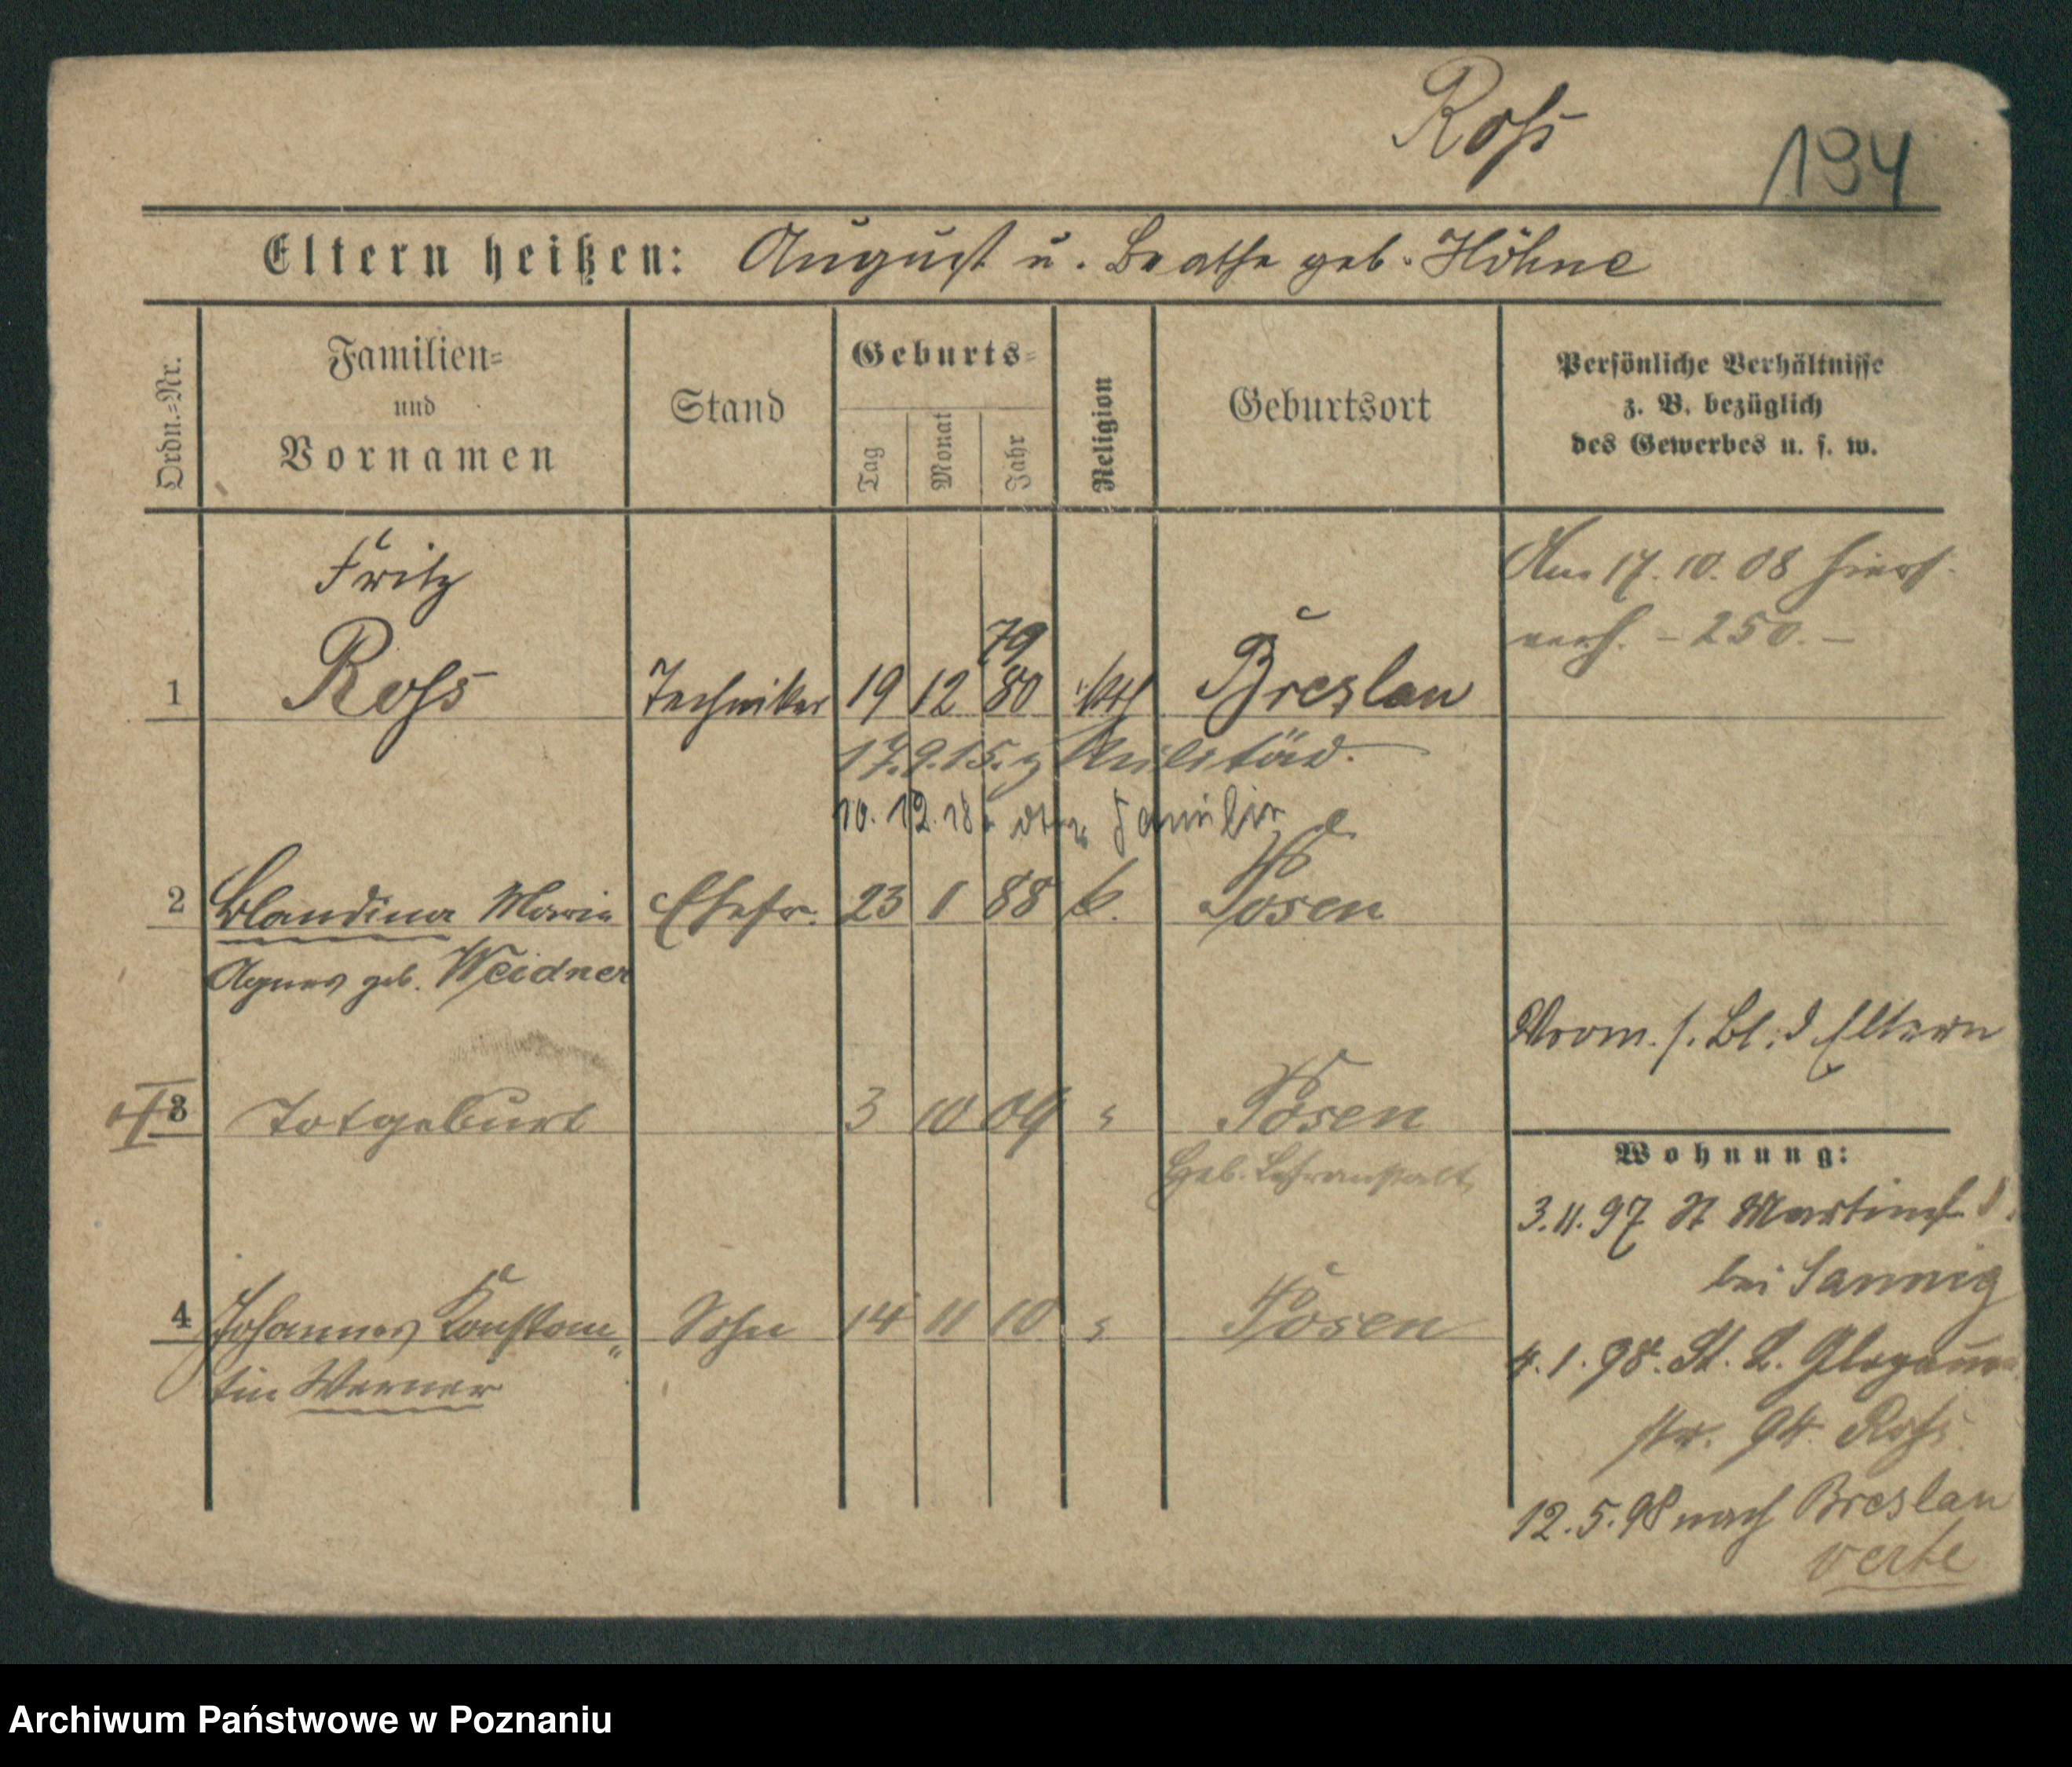 Roſs
194
Eltern heißen: August u. Beathe geb. Höhne
Ordn.-Nr.
Familien-
und
Vornamen
Stand
Geburts-
Tag
Monat
Jahr
Religion
Geburtsort
Persönliche Verhältnisse
z. B. bezüglich
des Gewerbes u. s. w.
Am 17.10.08 hiers.
verh. - 250. -
Fritz
79
1 Roſs Techniker 19 12 80 Breslau
17.9.15. z Militär.
10.12.18 Familie
2 Blandina Maria Ehefr. 23 1 88 k. Posen
Agnes geb. Weidner
Prom. s. Bl. d Eltern
3 Totgeburt 3 10 09 " Posen
Geb. Lehranstalt
Wohnung:
3.11.97 St Martinst
bei Sannig
4 Johannes Konstan" Sohn 14 11 10 " Posen
tin Werner
4.1.98. St. L. Glogauer
str. 94. Roſs
12.5.98 nach Breslau
verte
Archiwum Państwowe w Poznaniu